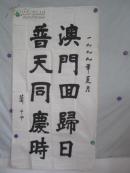 一九九九年夏月
澳門回歸日
普天同慶時